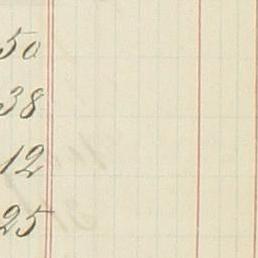 50
38
12
25